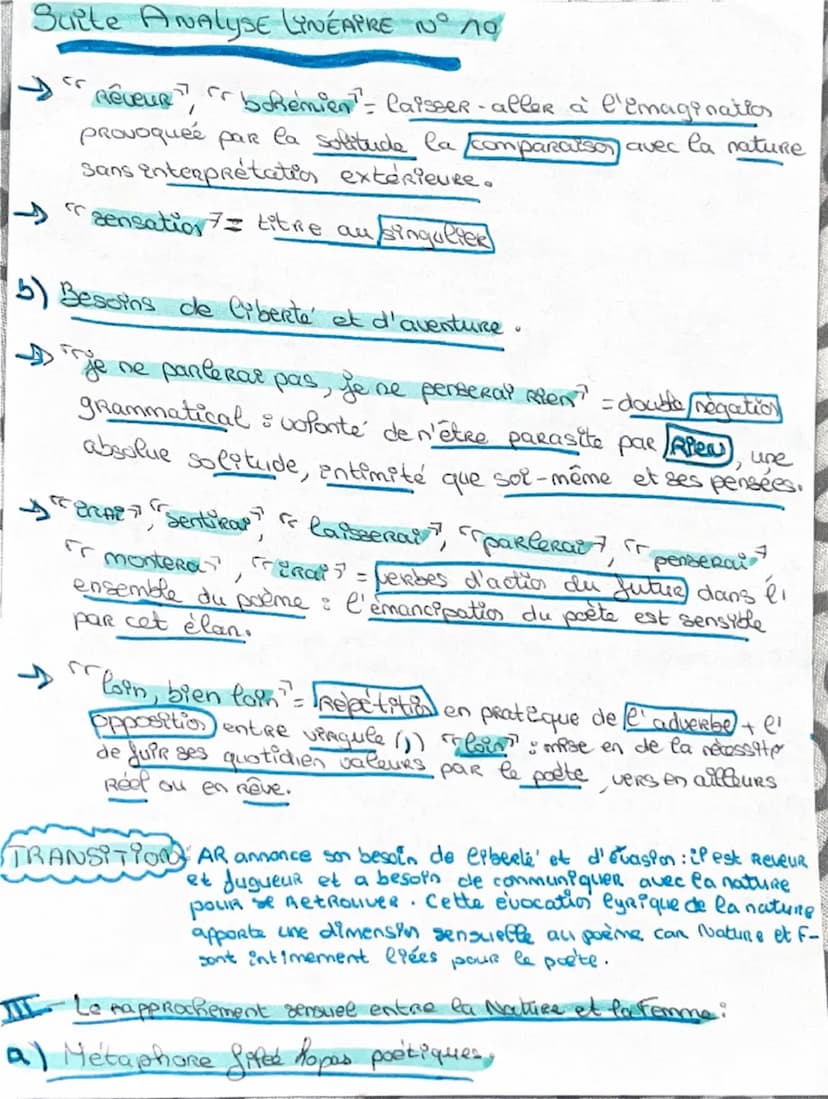 Suite ANALYSE LINÉAIRE N° 10
→ "rêveur", "bohémien" = laisser-aller à l'imagination
provoquée par la solitude la comparaison avec la nature
sans interprétation extérieure.
→ "sensation" = titre au singulier
b) Besoins de liberté et d'aventure.
→ "je ne parlerai pas, je ne penserai rien" = double négation
grammatical : volonté de n'être parasité par Rien, une
absolue solitude, intimité que soi-même et ses pensées.
→ "irai", "sentirai", "laisserai", "parlerai", "penserai"
"montera", "irai" = verbes d'action du futur dans l'
ensemble du poème : l'émancipation du poète est sensible
par cet élan.
→ "loin, bien loin" = Répétition en pratique de l'adverbe + l'
opposition entre virgule (,) "loin" : mise en de la nécessité
de fuir ses quotidien valeurs par le poète, vers en ailleurs
Réel ou en rêve.
TRANSITION : AR annonce son besoin de liberté et d'évasion : il est REVEUR
et fugueur et a besoin de communiquer avec la nature
pour se retrouver. Cette évocation lyrique de la nature
apporte une dimension sensuelle au poème car Nature et F-
sont intimement liées pour le poète.
III - Le rapprochement sensuel entre la Nature et la Femme :
a) Métaphore filée poétiques.